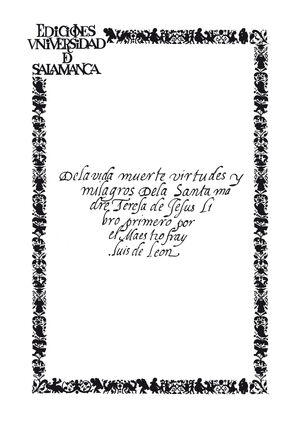 EDICIONES
VNIVERSIDAD
DE
SALAMANCA
De la vida muerte virtudes y
milagros De la Santa ma
dre Teresa de Jesus Li
bro primero por
el Maestro fray
luis de leon